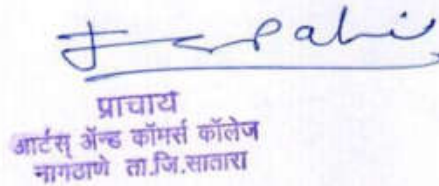 प्राचार्य
आर्टस् ॲन्ड कॉमर्स कॉलेज
नागठाणे ता.जि.सातारा